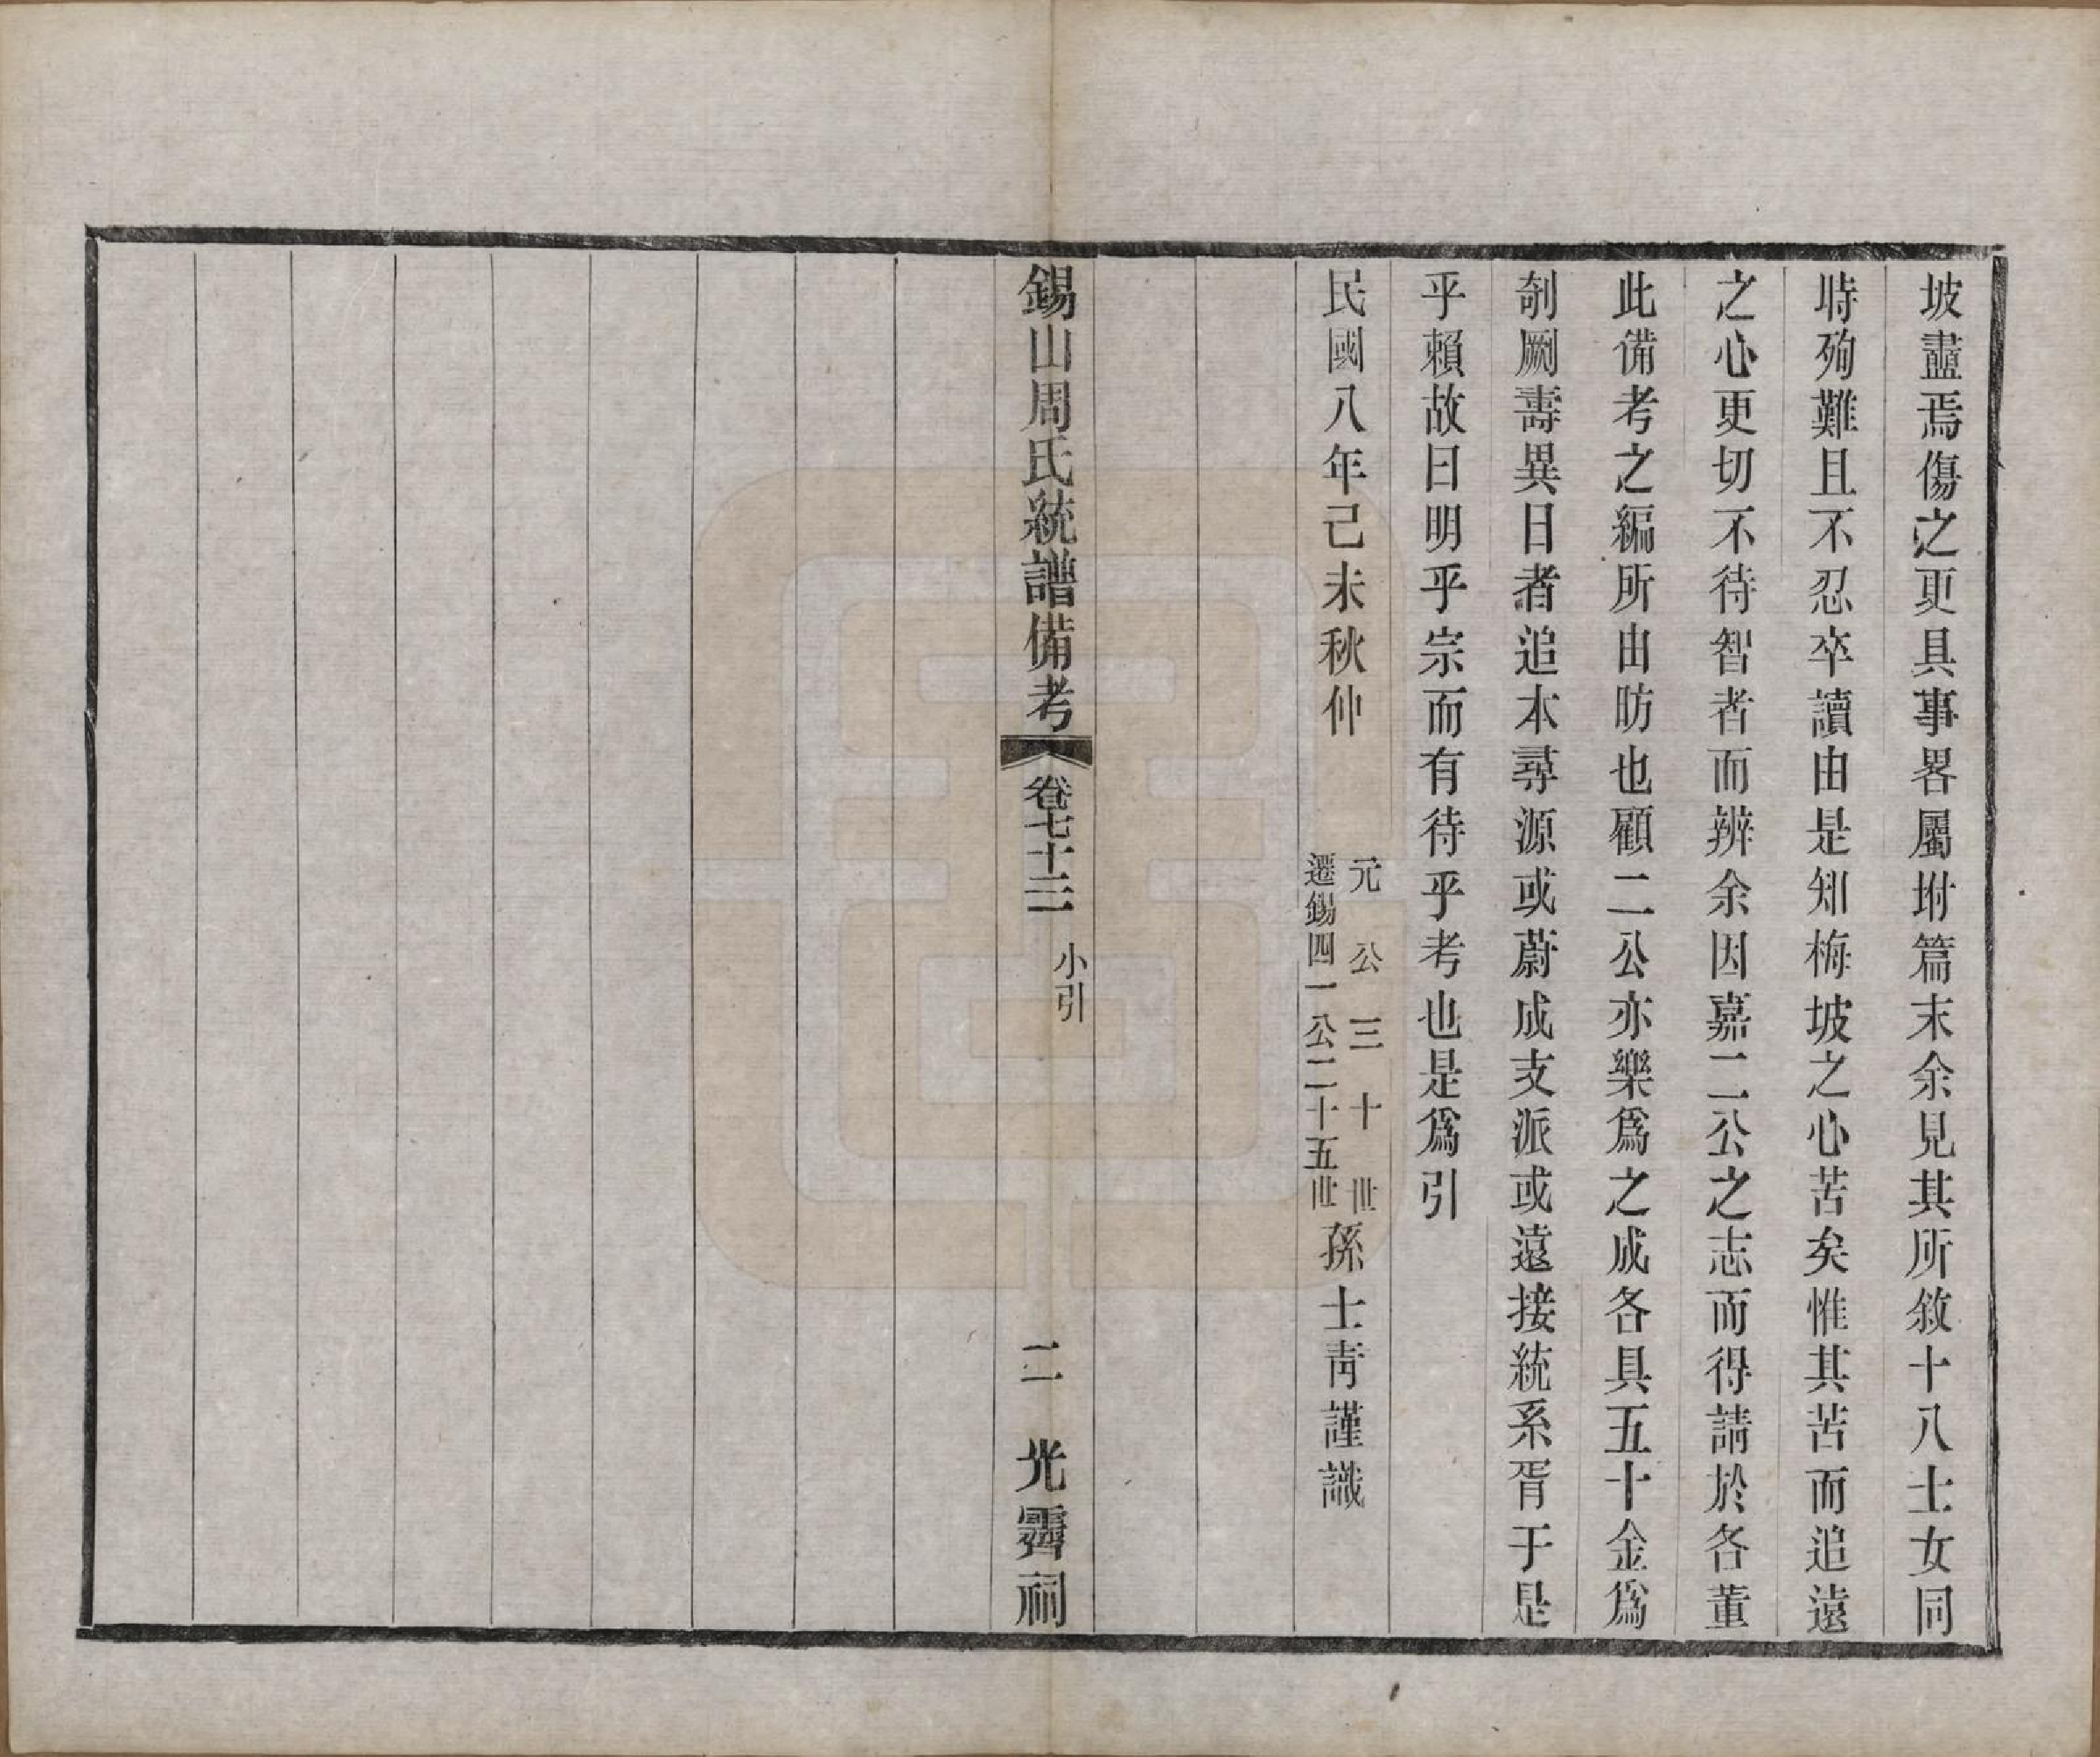 坡盡焉傷之更具事畧屬坿篇末余見其所敘十八士女同
時殉難且不忍卒讀由是知梅坡之心苦矣惟其苦而追遠
之心更切不待智者而辨余因嘉二公之志而得請於各董
此備考之編所由昉也顧二公亦樂爲之成各具五十金爲
剞劂壽異日者追本尋源或蔚成支派或遠接統系胥于是
乎賴故曰明乎宗而有待乎考也是爲引
民國八年己未秋仲
元公三十世
遷錫四一公二十五世
孫士靑謹識
錫山周氏統譜備考
卷七十三
小引
二
光霽祠